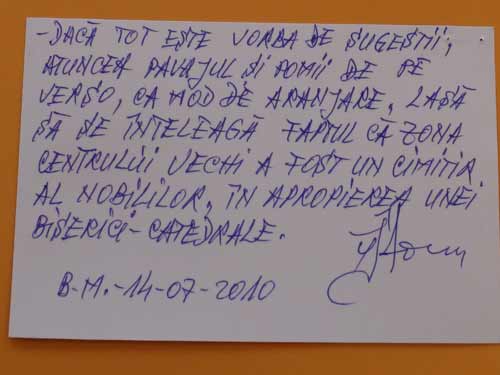 - DACĂ TOT ESTE VORBA DE SUGESTII,
ATUNCEA PAVAJUL SI POMII DE PE
VERSO, CA MOD DE ARANJARE, LASĂ
SĂ SE ÎNTELEAGĂ FAPTUL CĂ ZONA
CENTRULUI VECHI A FOST UN CIMITIR
AL NOBILILOR, ÎN APROPIEREA UNEI
BISERICI-CATEDRALE.
B.M.-14-07-2010